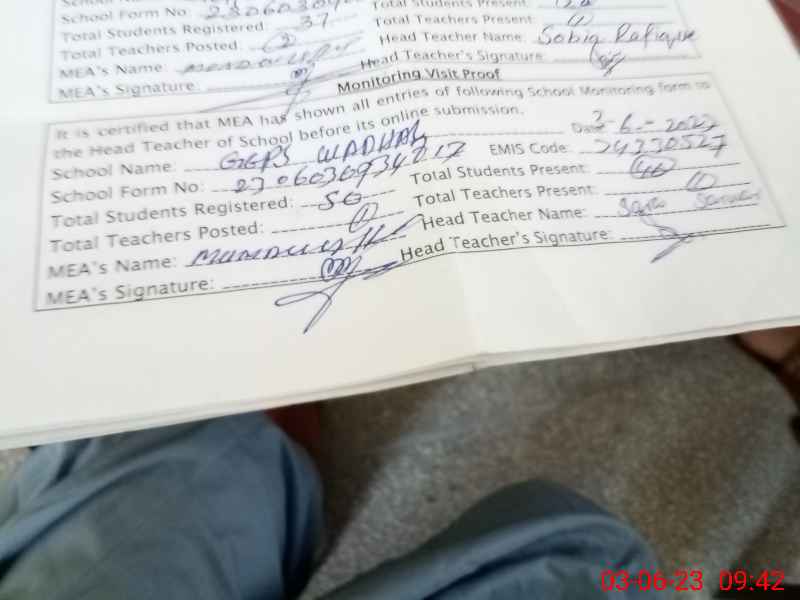 Total Students Present:
School Form No:
Total Students Registered: 37
Total Teachers Present: 1
Total Teachers Posted:
Head Teacher Name: Sobia Rafique
MEA's Name:
Head Teacher's Signature:
MEA's Signature:
Monitoring Visit Proof
It is certified that MEA has shown all entries of following School Monitoring form to
the Head Teacher of School before its online submission.
Date 3-6-2023
School Name: GGPS WADHAL
EMIS Code: 24330527
School Form No: 230603093421 7
Total Students Present: 40
Total Students Registered: 50
Total Teachers Present: 1
Total Teachers Posted: 1
Head Teacher Name:
MEA's Name:
Head Teacher's Signature:
MEA's Signature:
03-06-23 09:42